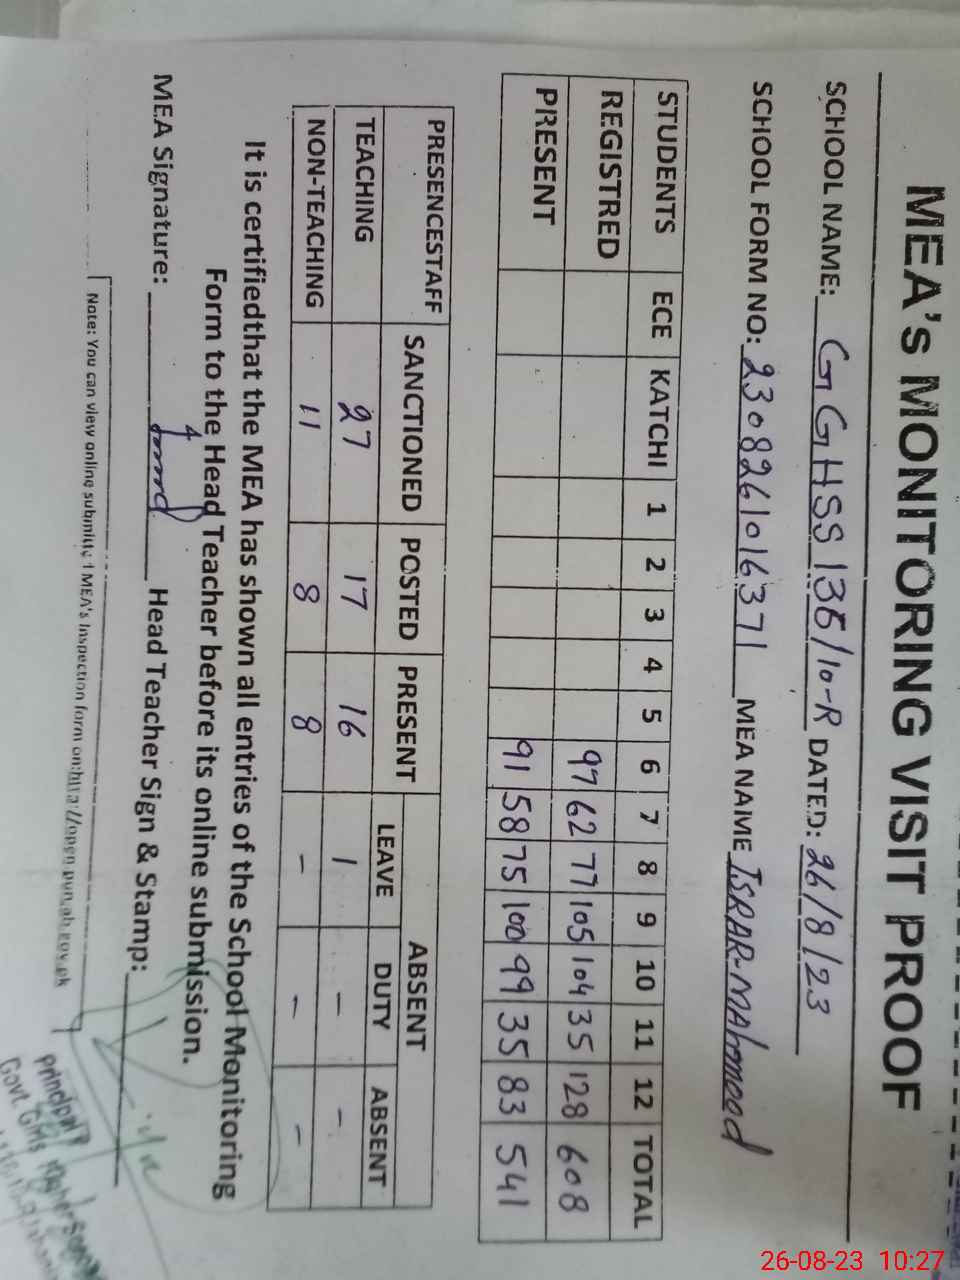 MEA's MONITORING VISIT PROOF
SCHOOL NAME: GGHSS 136/10-R DATED: 26/8/23
SCHOOL FORM NO: 230826101637 1 MEA NAME ISRAR-MAhmood
STUDENTS ECE KATCHI 1 2 3 4 5 6 7 8 9 10 11 12 TOTAL
REGISTRED 97 62 77 105 104 35 128 608
PRESENT 91 58 75 100 99 35 83 541
PRESENCESTAFF SANCTIONED POSTED PRESENT ABSENT
LEAVE DUTY ABSENT
TEACHING 27 17 16 1 - -
NON-TEACHING 11 8 8 - - -
It is certifiedthat the MEA has shown all entries of the School Monitoring
Form to the Head Teacher before its online submission.
MEA Signature: Head Teacher Sign & Stamp:
Note: You can view online submitted MEA's Inspection form on:http://open.punjab.gov.pk
Principal
Govt Girls Higher
26-08-23 10:27